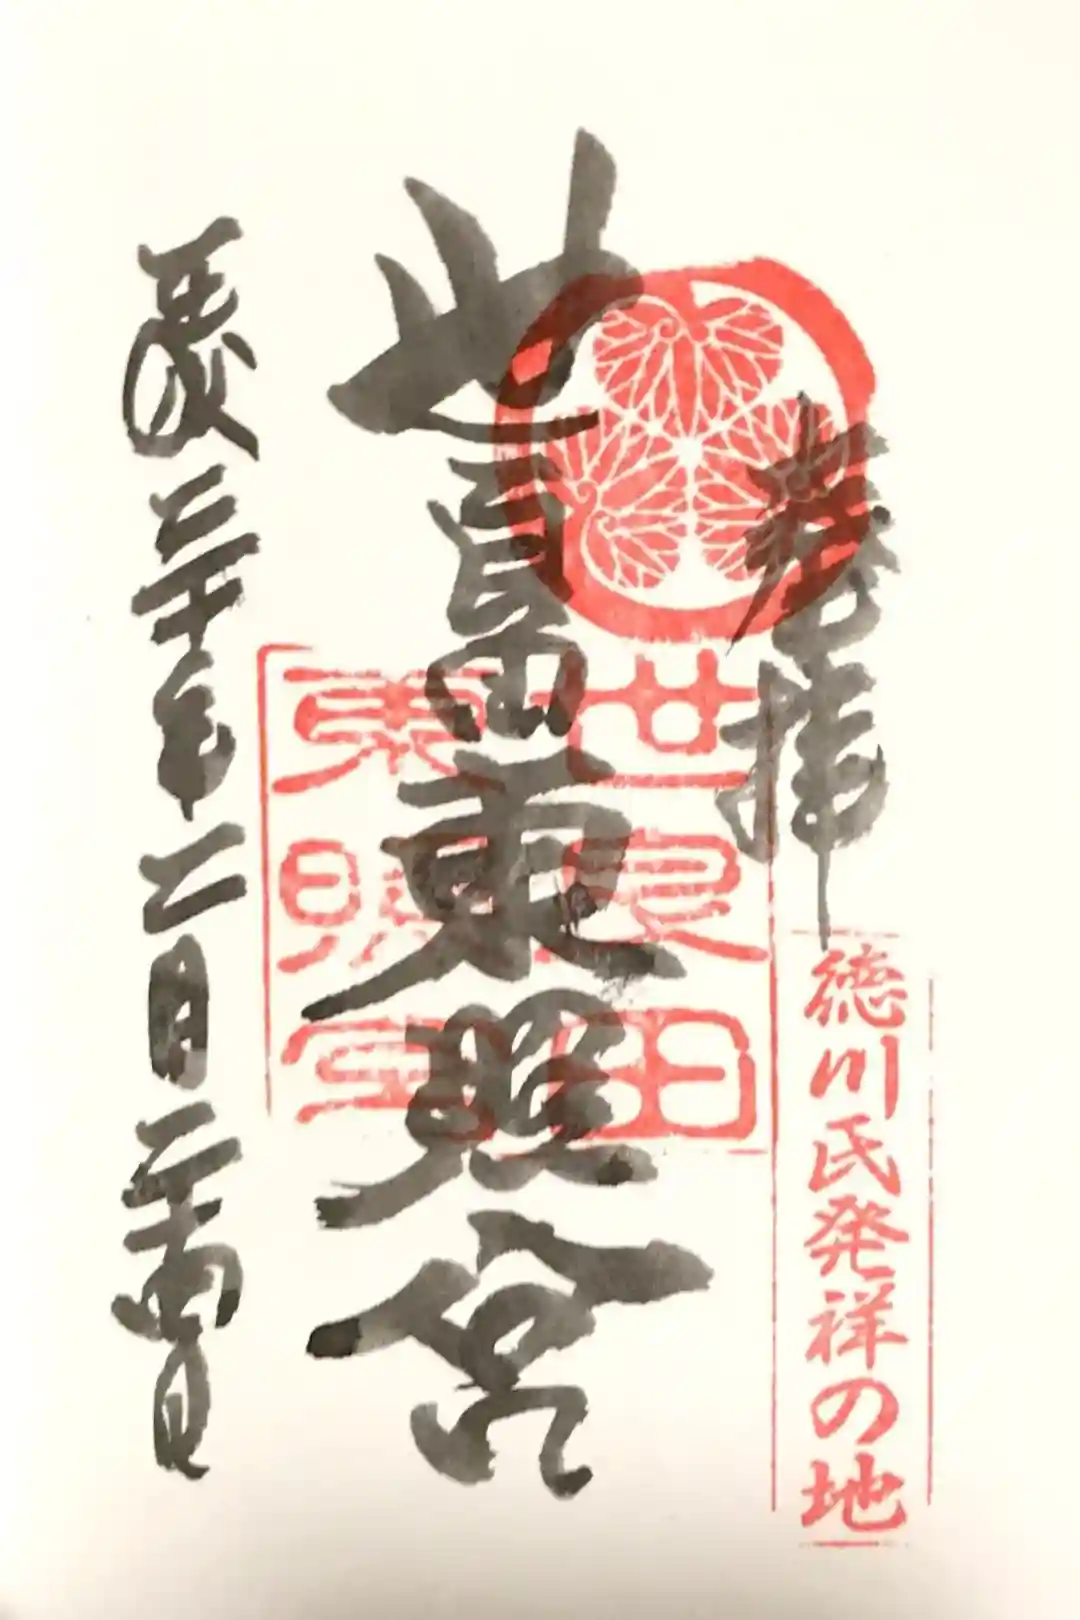 奉拝
徳川氏発祥の地
世良田東照宮
世良田
東照宮
平成三十年二月二十日